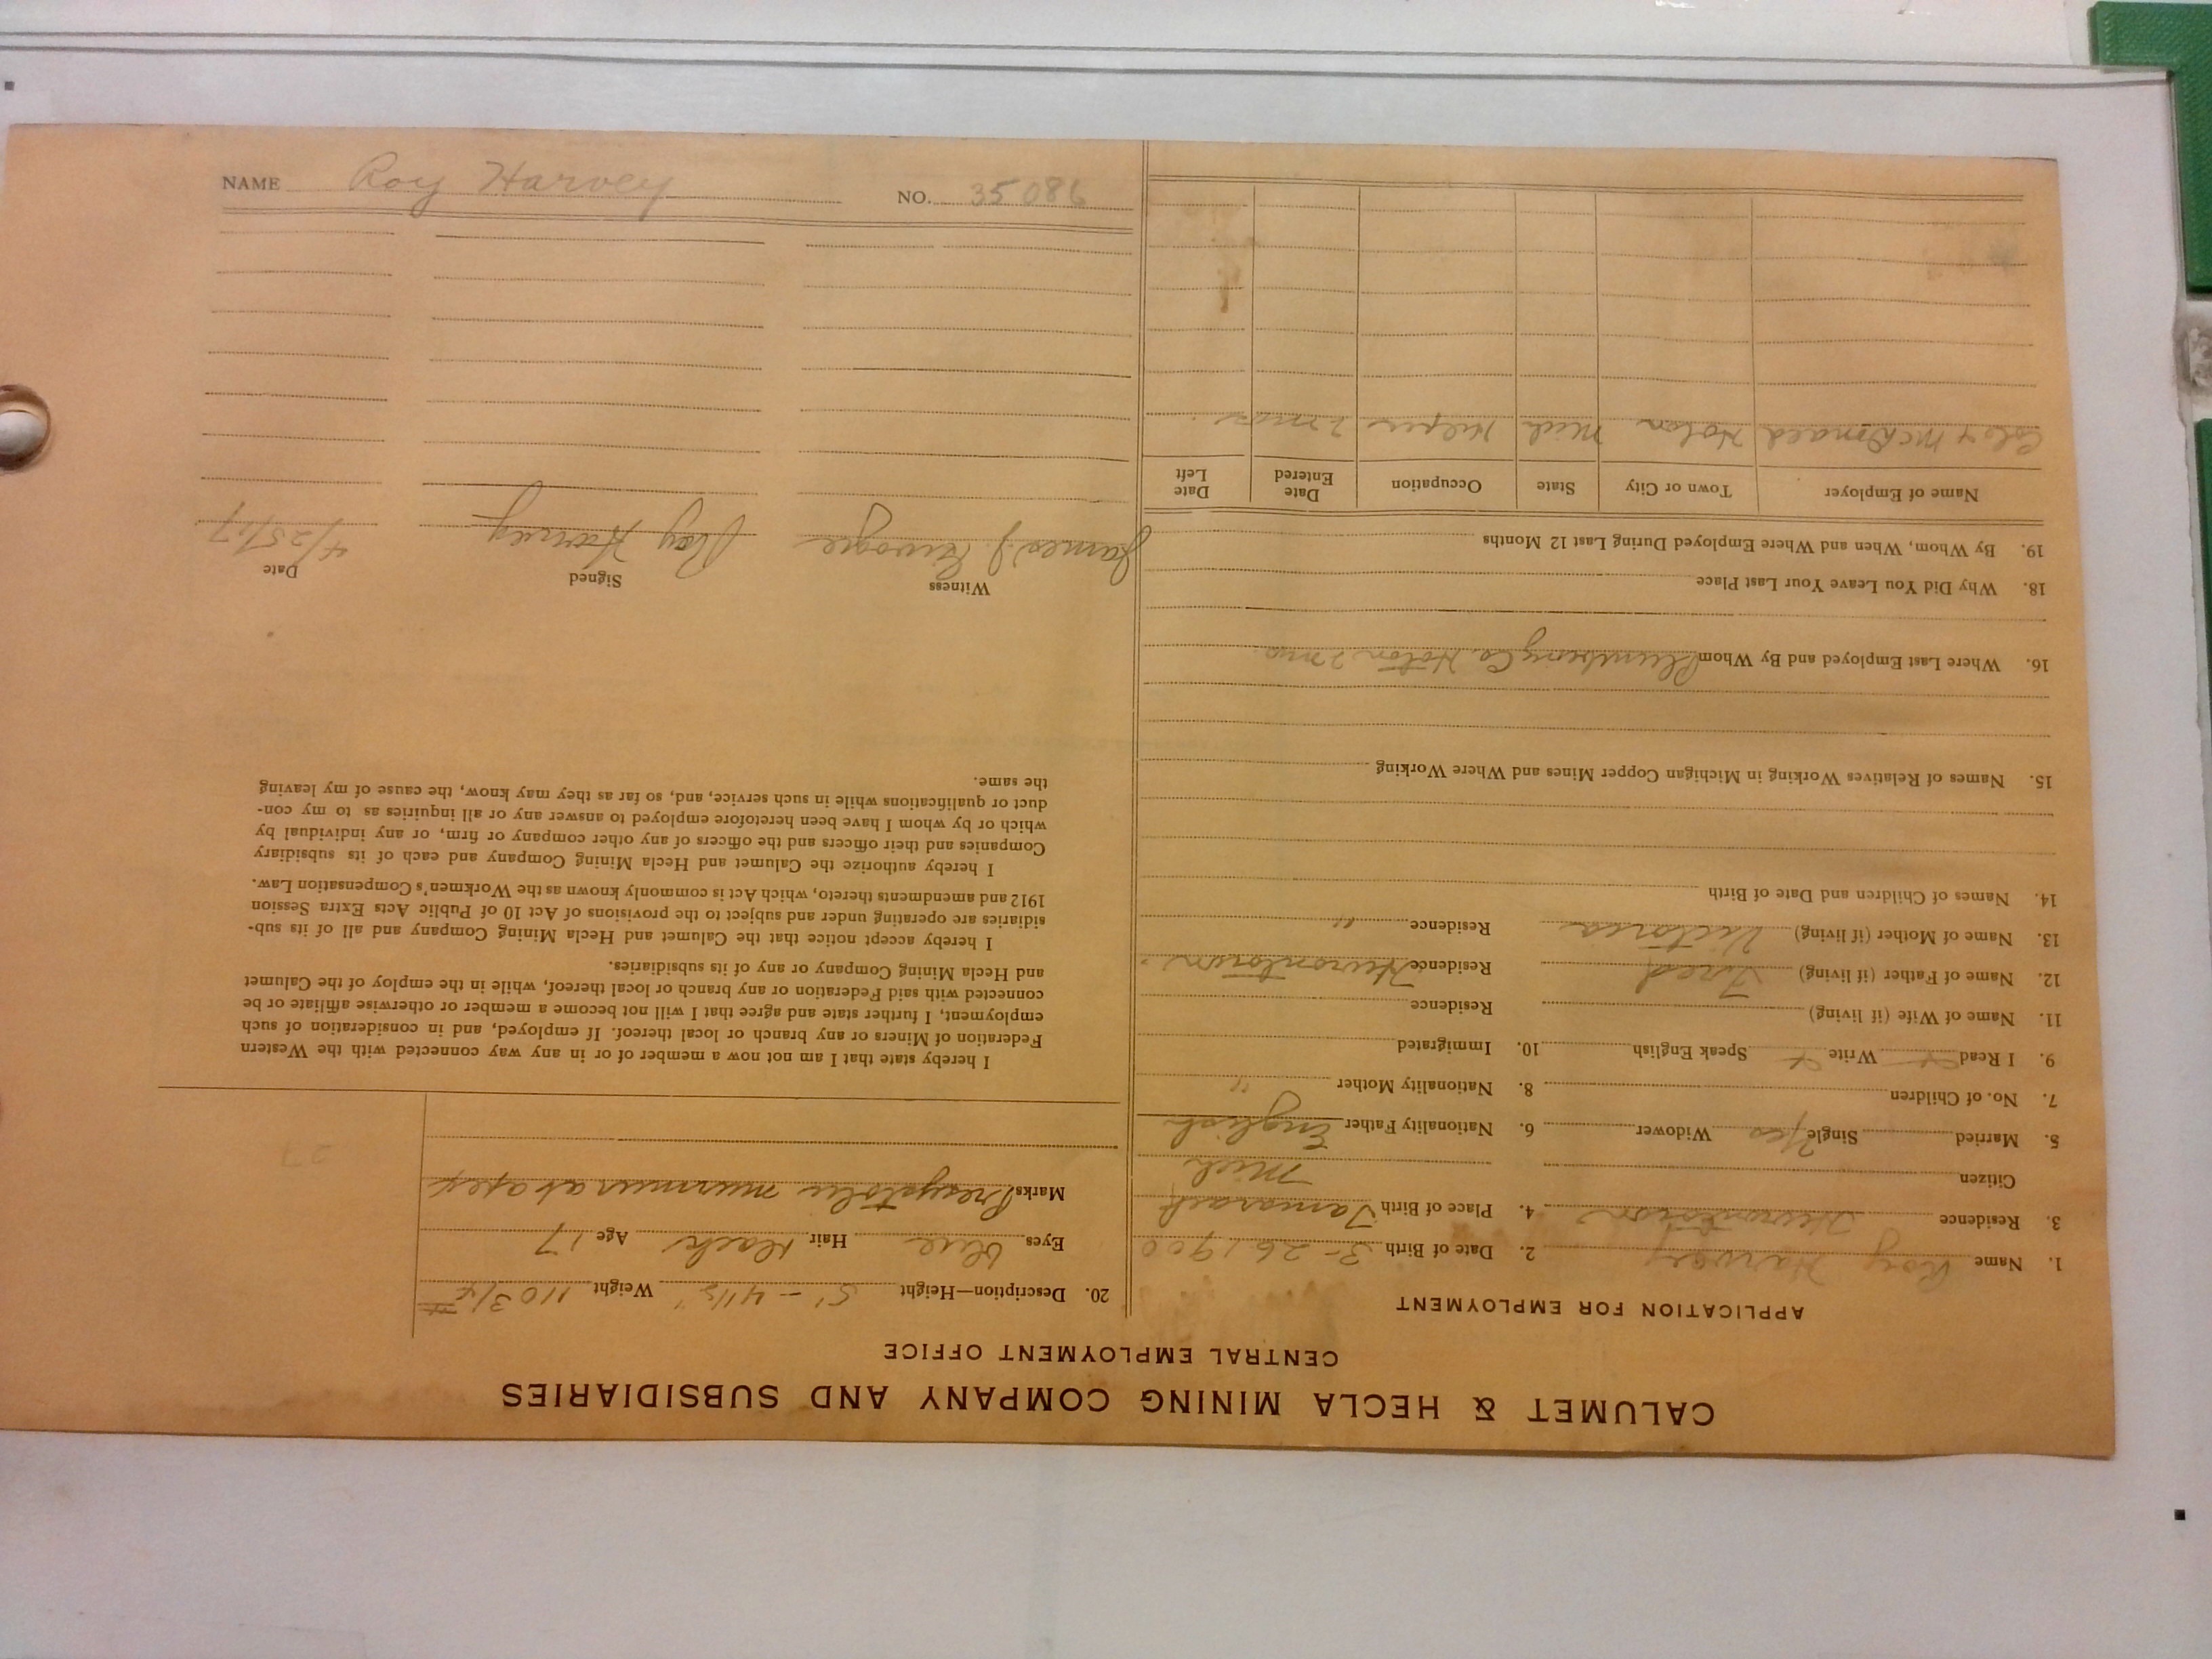 NAME Roy Harvey NO. 35086
CALUMET & HECLA MINING COMPANY AND SUBSIDIARIES
CENTRAL EMPLOYMENT OFFICE
APPLICATION FOR EMPLOYMENT
1. Name Roy Harvey 2. Date of Birth 3-26 1900
3. Residence Hurontown 4. Place of Birth Tamarack
Citizen Mich
5. Married Single Yes Widower 6. Nationality Father English
7. No. of Children 8. Nationality Mother "
9. I Read Write Speak English 10. Immigrated
11. Name of Wife (if living) Residence
12. Name of Father (if living) Fred Residence Hurontown
13. Name of Mother (if living) Victoria Residence "
14. Names of Children and Date of Birth
15. Names of Relatives Working in Michigan Copper Mines and Where Working
16. Where Last Employed and By Whom Plumbing Co. Hoton 2 mos.
18. Why Did You Leave Your Last Place
19. By Whom, When and Where Employed During Last 12 Months
Name of Employer Town or City State Occupation Date Entered Date Left
McDonald Hoton Mich Helper 2 mos
20. Description—Height 5'-4 1/2" Weight 110 3/4 #
Eyes Blue Hair Black Age 17
Marks Presystolic murmur at apex
27
I hereby state that I am not now a member of or in any way connected with the Western
Federation of Miners or any branch or local thereof. If employed, and in consideration of such
employment, I further state and agree that I will not become a member or otherwise affiliate or be
connected with said Federation or any branch or local thereof, while in the employ of the Calumet
and Hecla Mining Company or any of its subsidiaries.
I hereby accept notice that the Calumet and Hecla Mining Company and all of its sub-
sidiaries are operating under and subject to the provisions of Act 10 of Public Acts Extra Session
1912 and amendments thereto, which Act is commonly known as the Workmen's Compensation Law.
I hereby authorize the Calumet and Hecla Mining Company and each of its subsidiary
Companies and their officers and the officers of any other company or firm, or any individual by
which or by whom I have been heretofore employed to answer any or all inquiries as to my con-
duct or qualifications while in such service, and, so far as they may know, the cause of my leaving
the same.
Witness Signed Date
James J. Roy Harvey 4/25/17